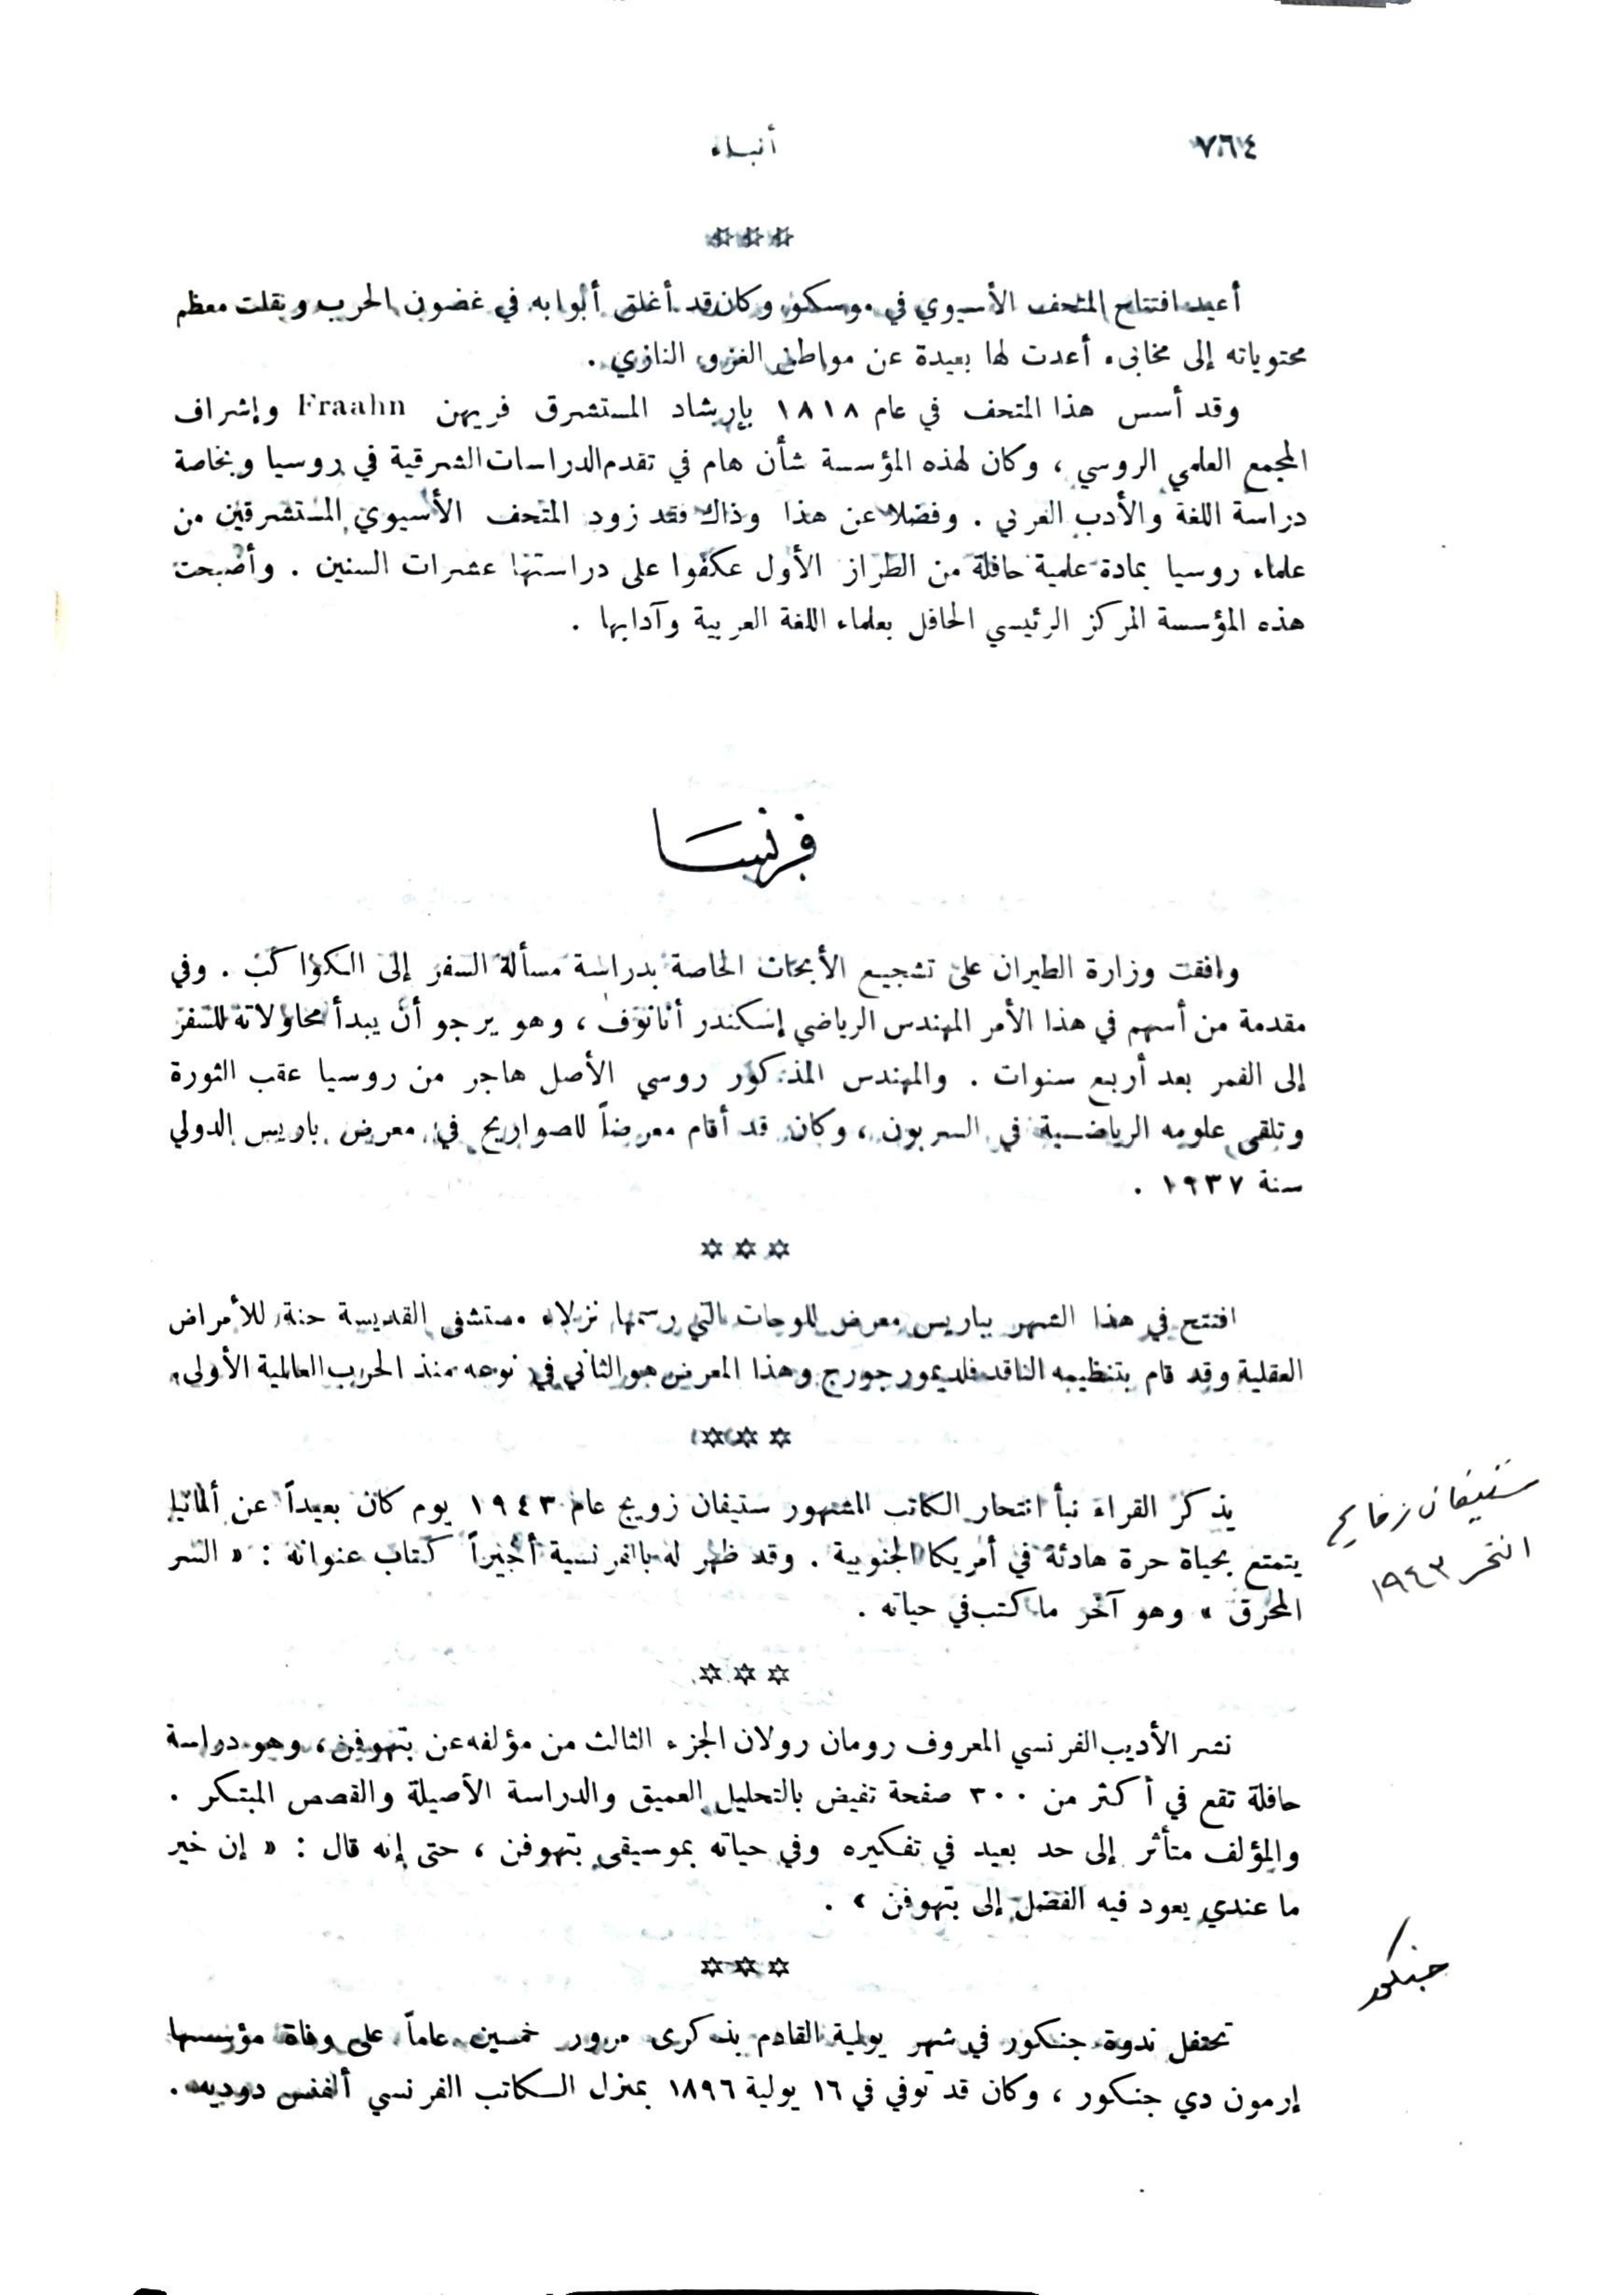 ٧٦٤
أنباء
✡✡✡
أعيد افتتاح المتحف الأسيوي في موسكو وكان قد أغلق أبوابه في غضون الحرب ونقلت معظم
محتوياته إلى مخابىء أعدت لها بعيدة عن مواطن الغزو النازي .
وقد أسس هذا المتحف في عام ١٨١٨ بإرشاد المستشرق فريهن Fraahn وإشراف
المجمع العلمي الروسي ، وكان لهذه المؤسسة شأن هام في تقدم الدراسات الشرقية في روسيا وبخاصة
دراسة اللغة والأدب العربي . وفضلا عن هذا وذاك فقد زود المتحف الأسيوي المستشرقين من
علماء روسيا بمادة علمية حافلة من الطراز الأول عكفوا على دراستها عشرات السنين . وأضبحت
هذه المؤسسة المركز الرئيسي الحافل بعلماء اللغة العربية وآدابها .
فرنسا
وافقت وزارة الطيران على تشجيع الأبحاث الخاصة بدراسة مسألة السفر إلى الكواكب . وفي
مقدمة من أسهم في هذا الأمر المهندس الرياضي إسكندر أنانوف ، وهو يرجو أن يبدأ محاولاته للسفر
إلى القمر بعد أربع سنوات . والمهندس المذكور روسي الأصل هاجر من روسيا عقب الثورة
وتلقى علومه الرياضية في السربون ، وكان قد أقام معرضاً للصواريخ في معرض باريس الدولي
سنة ١٩٣٧ .
✡✡✡
افتتح في هذا الشهر بباريس معرض للوحات التي رسمها نزلاء مستشفى القديسة حنة للأمراض
العقلية وقد قام بتنظيمه الناقد فلديمور جورج وهذا المعرض هو الثاني في نوعه منذ الحرب العالمية الأولى .
✡✡✡
يذكر القراء نبأ انتحار الكاتب المشهور ستيفان زويج عام ١٩٤٣ يوم كان بعيداً عن ألمانيا
يتمتع بحياة حرة هادئة في أمريكا الجنوبية . وقد ظهر له بالفرنسية أخيراً كتاب عنوانه : « السر
المحرق » وهو آخر ما كتب في حياته .
ستيفان زفايج
انتحر ١٩٤٣
✡✡✡
نشر الأديب الفرنسي المعروف رومان رولان الجزء الثالث من مؤلفه عن بتهوفن ، وهو دراسة
حافلة تقع في أكثر من ٣٠٠ صفحة تفيض بالتحليل العميق والدراسة الأصيلة والقصص المبتكر .
والمؤلف متأثر إلى حد بعيد في تفكيره وفي حياته بموسيقى بتهوفن ، حتى إنه قال : « إن خير
ما عندي يعود فيه الفضل إلى بتهوفن » .
✡✡✡
جنكور
تحتفل ندوة جنكور في شهر يولية القادم بذكرى مرور خمسين عاماً على وفاة مؤسسها
إرمون دي جنكور ، وكان قد توفي في ١٦ يولية ١٨٩٦ بمنزل الكاتب الفرنسي ألفنس دوديه .